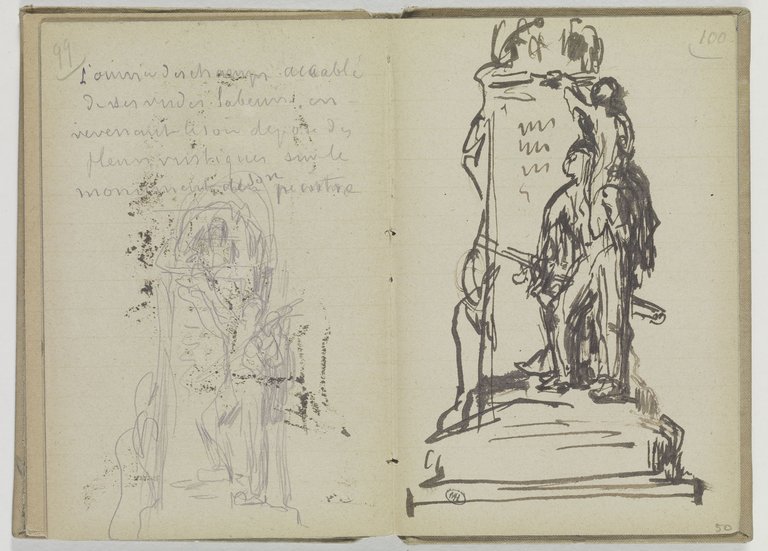 99
L'ouvrier des champs accablé
de ses rudes labeurs, en
revenant le soir depose des
fleurs rustiques sur le
monument de son peintre
100
50